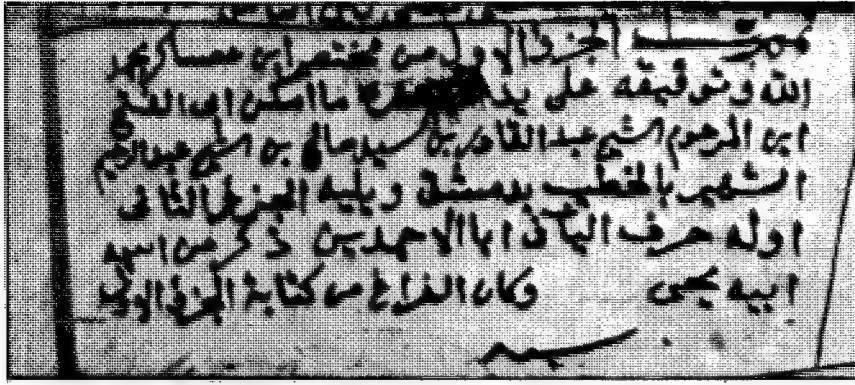 تمت الجزؤ الاول من مختصر ابن عساكر بحمد
الله وتوفيقه على يد ابى الفتح
ابن المرحوم الشيخ عبد القادر بن السيد صالح بن الشيخ عبد الرحيم
الشهير بالخطيب بدمشق ويليه الجزؤ الثانى
اوله حرف اليا فى ابا الاحمدين ذكر من اسم
ابيه يحيى وكان الفراغ من كتابة الجزؤ الاول